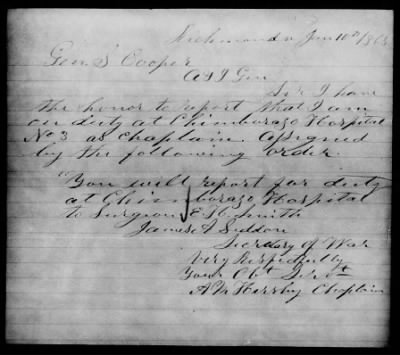 Richmond Va Jan 10th 1863
Gen S Cooper
A & I Gen
Sir I have
the honor to report that I am
on duty at Chimborazo Hospital
No 3 as Chaplain. Assigned
by the following order.
You will report for duty
at Chimborazo Hospital
to Surgeon E H Smith
James A Seddon
Secretary of War
Very Respectfully
Your Obt Servt
A M Chaplain